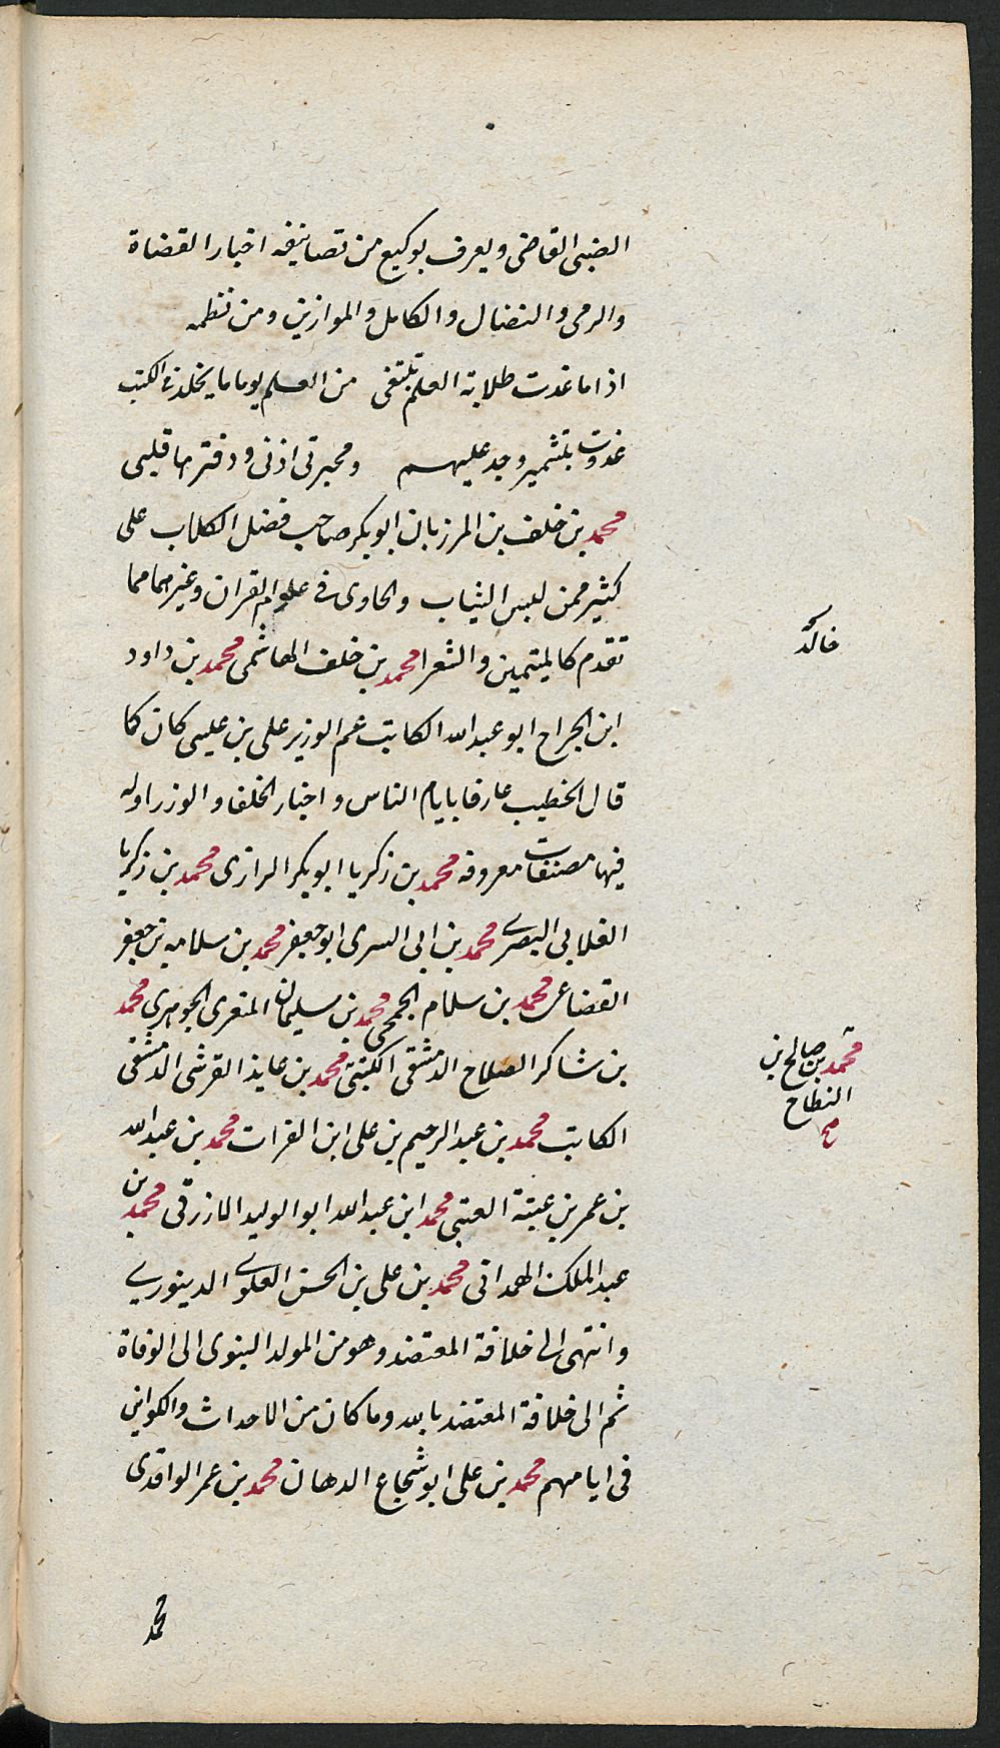 الضبى القاضى ويعرف بوكيع من تصانيفه اخبار القضاة
والرمى والنضال والكامل والموازين ومن نظمه
اذا ما غدت طلابة العلم تبتغى من العلم يوما ما يخلد فى الكتب
غدوت بتشمير وجد عليهم ومحبرتى اذنى ودفترها قلبى
محمد بن خلف بن المرزبان ابو بكر صاحب فضل الكلاب على
كثير ممن لبس الثياب والحاوى فى علوم القران وغيرهما مما
تقدم كالمتيمين والشعرا محمد بن خلف الهاشمى محمد بن داود
ابن الجراح ابو عبد الله الكاتب عم الوزير على بن عيسى كان كما
قال الخطيب عارفا بايام الناس واخبار الخلفا والوزرا وله
فيها مصنفات معروفه محمد بن زكريا ابو بكر الرازى محمد بن زكريا
الغلابى البصرى محمد بن ابى السرى ابو جعفر محمد بن سلامه بن جعفر
القضاعى محمد بن سلام الجمحى محمد بن سليمان المنقرى الجوهرى محمد
بن شاكر الصلاح الدمشقى الكتبى محمد بن عايذ القرشى الدمشقى
الكاتب محمد بن عبد الرحيم بن على ابن الفرات محمد بن عبد الله
بن عمر بن عتبة العتبى محمد ابن عبد الله ابو الوليد الازرقى محمد بن
عبد الملك الهمدانى محمد بن على بن الحسن العلوى الدينورى
وانتهى الى خلافة المعتضد وهو من المولد النبوى الى الوفاة
ثم الى خلافة المعتضد بالله وما كان من الاحداث والكواين
فى ايامهم محمد بن على ابو شجاع الدهان محمد بن عمر الواقدى
محمد بن صالح بن
النطاح
صح
محمد